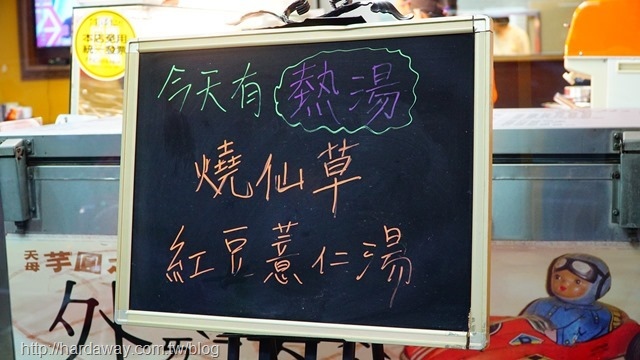 本店免用
統一發票
今天有 熱湯
燒仙草
紅豆薏仁湯
天母 芋圓
http://hardaway.com.tw/blog